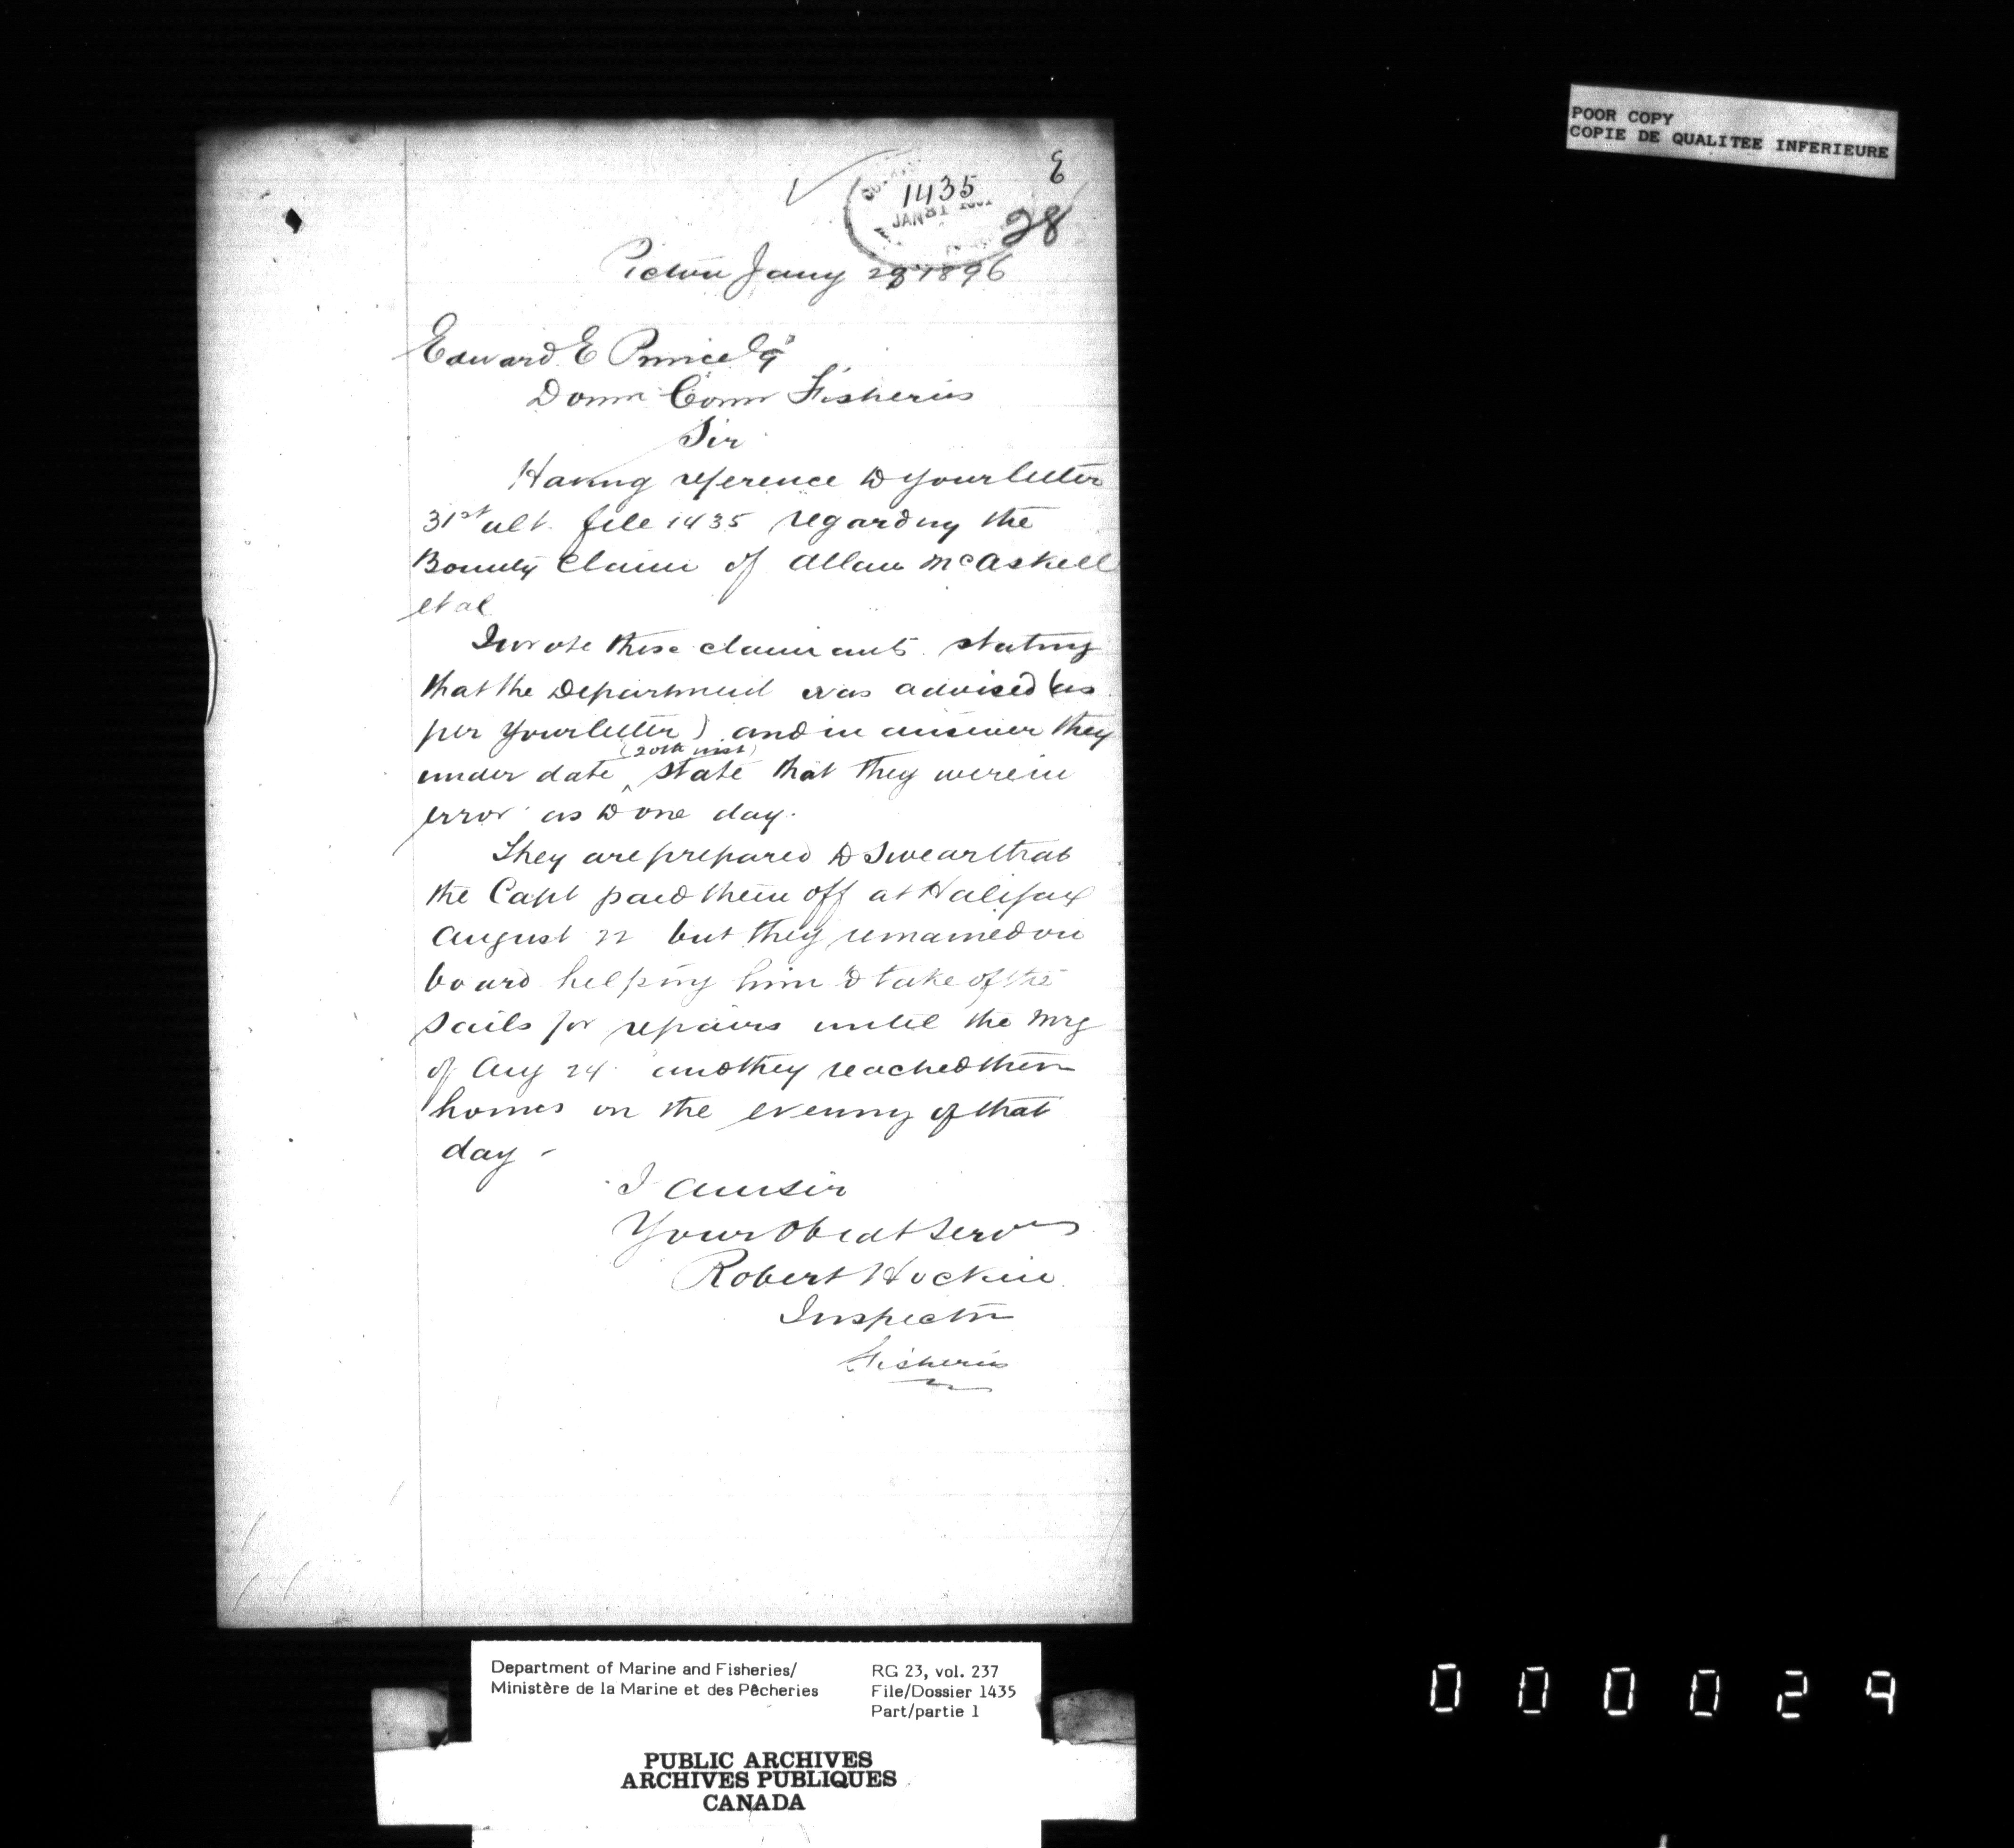 POOR COPY
COPIE DE QUALITEE INFERIEURE
E
1435
JAN 31
28
Pictou Jany 29 1896
Edward E Prince Esq
Domn Comr Fisheries
Sir
Having reference to your letter
31st ult. file 1435 regarding the
Bounty Claim of Allan McAskell
et al
I wrote these claimants stating
that the Department was advised (as
per your letter) and in answer they
(20th inst)
under date ^ state that they were in
error as to one day.
They are prepared to swear that
the Capt paid them off at Halifax
August 22 but they remained on
board helping him to take of the
sails for repairs until the mrg
of Aug 24 and they reached their
homes on the evening of that
day -
I am sir
Your Obedt Serv
Robert Hockin
Inspector
Fisheries
Department of Marine and Fisheries/
Ministère de la Marine et des Pêcheries
RG 23, vol. 237
File/Dossier 1435
Part/partie 1
PUBLIC ARCHIVES
ARCHIVES PUBLIQUES
CANADA
000029